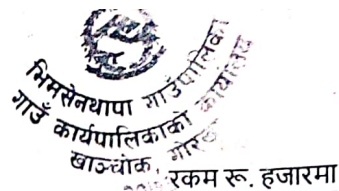 भिमसेनथापा गाउँपालिका
गाउँ कार्यपालिकाको कार्यालय
खाञ्चोक, गोरखा
रकम रू. हजारमा